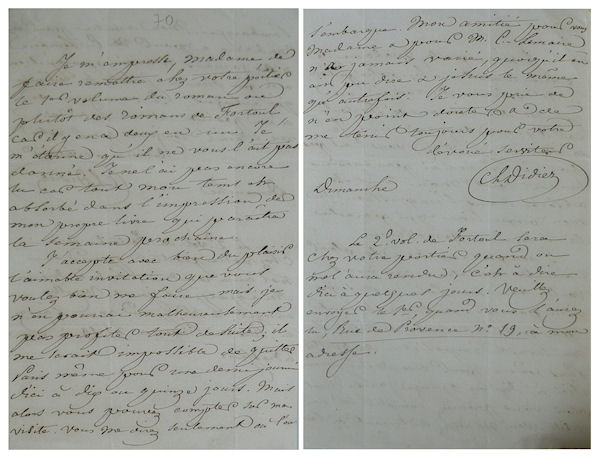 70
Je m'empresse, Madame, de
faire remettre chez votre portier
le 1er volume du roman ou
plutôt des romans de Fortoul
car il y en a deux en un. Je
m'étonne qu'il ne vous l'ait pas
donné. Je ne l'ai pas encore
lu car tout mon tems est
absorbé dans l'impression de
mon propre livre qui paraîtra
la semaine prochaine.
J'accepte avec bien du plaisir
l'aimable invitation que vous
voulez bien me faire, mais je
n'en pourrai malheureusement
pas profiter tout de suite, il
me serait impossible de quitter
Paris même pour une demi journée
d'ici à dix ou quinze jours. Mais
alors vous pouvez compter sur ma
visite. Vous me direz seulement où l'on
s'embarque. Mon amitié pour vous
Madame & pour M. C. Lemaire
n'a jamais varié, quoiqu'il en
ait pu dire & je suis le même
qu'autrefois. Je vous prie de
n'en point douter & de
me tenir toujours pour votre
dévoué serviteur
Ch. Didier
Dimanche
Le 2d vol. de Fortoul sera
chez votre portier quand on
me l'aura rendu, c'est à dire
d'ici à quelques jours. Veuillez
envoyer le 1er quand vous l'aurez
lu Rue de Provence No 19, à mon
adresse.